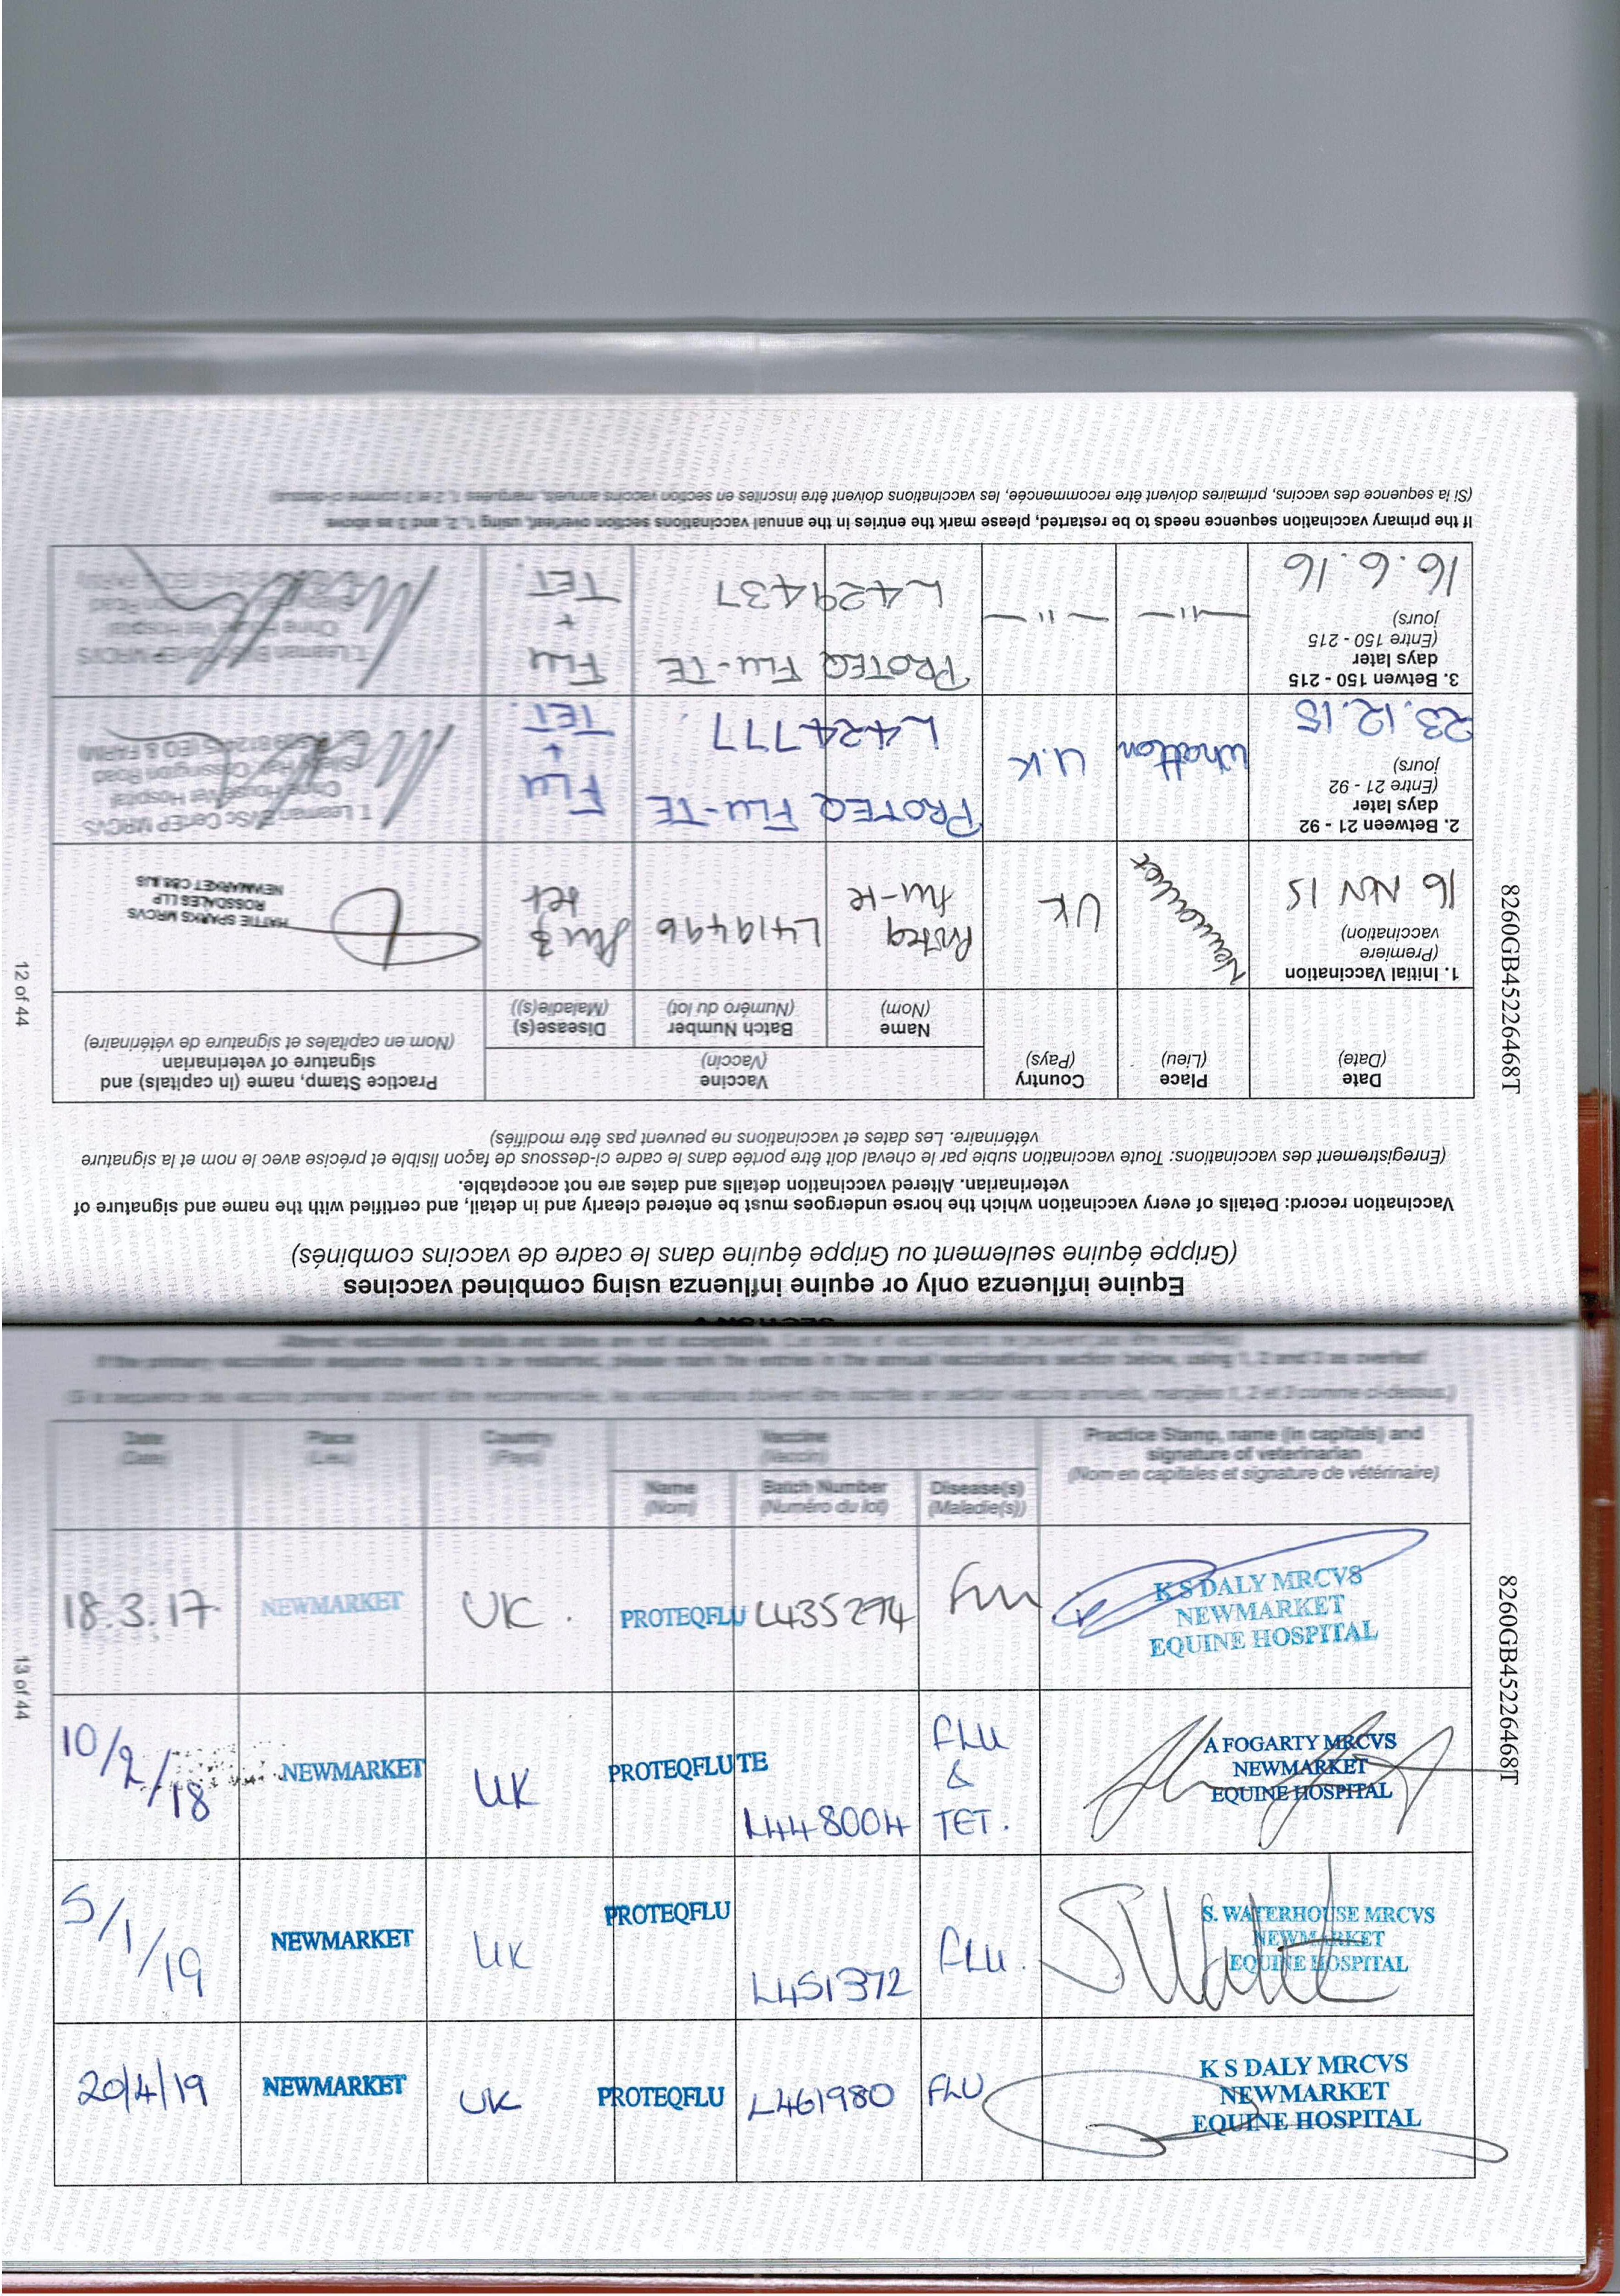 SECTION A
Equine influenza only or equine influenza using combined vaccines
(Grippe équine seulement ou Grippe équine dans le cadre de vaccins combinés)
Vaccination record: Details of every vaccination which the horse undergoes must be entered clearly and in detail, and certified with the name and signature of
veterinarian. Altered vaccination details and dates are not acceptable.
(Enregistrement des vaccinations: Toute vaccination subie par le cheval doit être portée dans le cadre ci-dessous de façon lisible et précise avec le nom et la signature
vétérinaire. Les dates et vaccinations ne peuvent pas être modifiés)
Date
(Date)
Place
(Lieu)
Country
(Pays)
Vaccine
(Vaccin)
Name
(Nom)
Batch Number
(Numéro du lot)
Disease(s)
(Maladie(s))
Practice Stamp, name (in capitals) and
signature of veterinarian
(Nom en capitales et signature de vétérinaire)
1. Initial Vaccination
(Premiere
vaccination)
16 NOV 15
Newmarket
UK
Proteq
flu-te
L419496
flu3
tet
HATTIE SPARKS MRCVS
ROSSDALES LLP
NEWMARKET CB8
2. Between 21 - 92
days later
(Entre 21 - 92
jours)
23.12.15
Whatton
U.K
PROTEQ FLU-TE
L424777
FLU
+
TET.
T. Leaman BVSc CertEP MRCVS
Hospital
Road
(EQ & FARM)
3. Betwen 150 - 215
days later
(Entre 150 - 215
jours)
16.6.16
— 11 —
— 11 —
PROTEQ FLU-TE
L429437
FLU
+
TET.
T. Leaman CertEP MRCVS
Vet Hospital
If the primary vaccination sequence needs to be restarted, please mark the entries in the annual vaccinations section overleaf, using 1, 2, and 3 as above
(Si la sequence des vaccins, primaires doivent être recommencée, les vaccinations doivent être inscrites en section vaccins annuels, marquées 1, 2 et 3 comme ci-dessus)
12 of 44
8260GB45226468T
If the primary vaccination sequence needs to be restarted, please mark the entries in the annual vaccinations section below, using 1, 2 and 3 as overleaf
Date
(Date)
Place
(Lieu)
Country
(Pays)
Vaccine
(Vaccin)
Name
(Nom)
Batch Number
(Numéro du lot)
Disease(s)
(Maladie(s))
Practice Stamp, name (in capitals) and
signature of veterinarian
(Nom en capitales et signature de vétérinaire)
18.3.17.
NEWMARKET
UK.
PROTEQFLU
L435274
Flu
K S DALY MRCVS
NEWMARKET
EQUINE HOSPITAL
10/2/18
NEWMARKET
UK
PROTEQFLU TE
L448004
FLU
&
TET.
A FOGARTY MRCVS
NEWMARKET
EQUINE HOSPITAL
5/1/19
NEWMARKET
UK
PROTEQFLU
L451372
FLU.
S. WATERHOUSE MRCVS
NEWMARKET
EQUINE HOSPITAL
20/4/19
NEWMARKET
UK
PROTEQFLU
L461980
FLU
K S DALY MRCVS
NEWMARKET
EQUINE HOSPITAL
13 of 44
8260GB45226468T